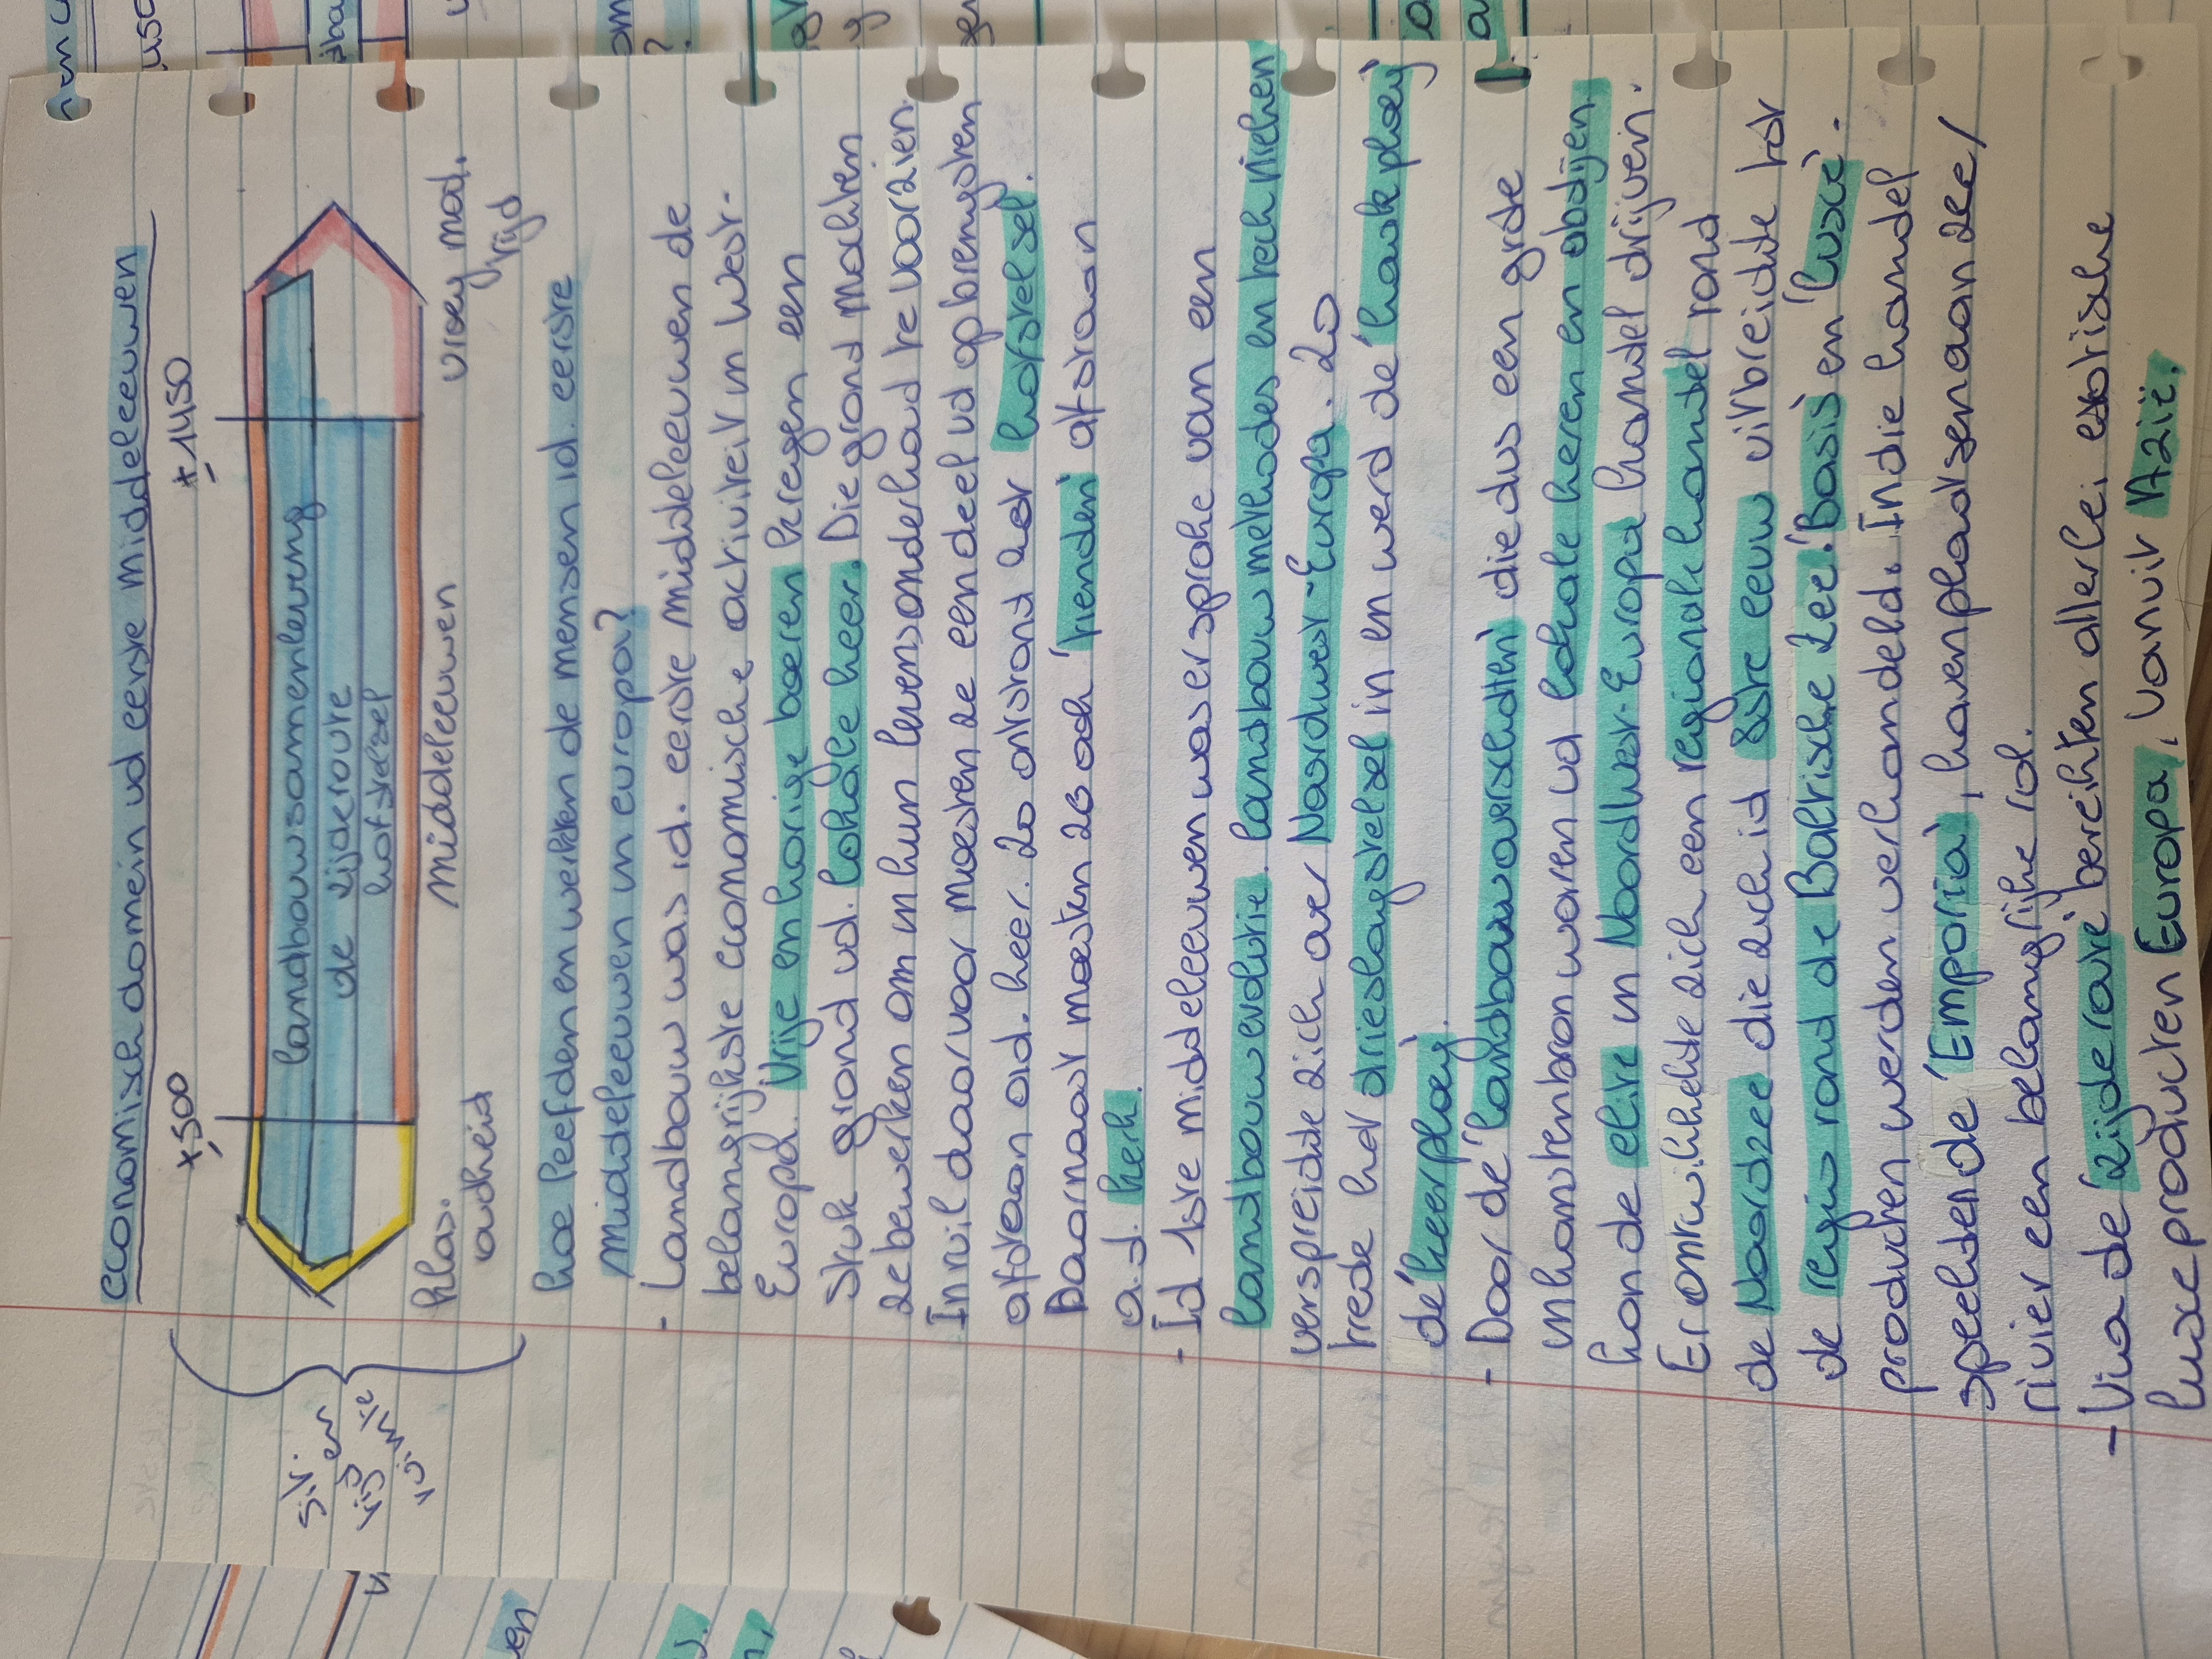 economisch domein vd eerste middeleeuwen
± 500
± 1450
landbouwsamenleving
de zijderoute
hofstelsel
klas.
oudheid
middeleeuwen
vroeg mod.
tijd
hoe leefden en werkten de mensen id. eerste
middeleeuwen in europa?
- Landbouw was id. eerste middeleeuwen de
belangrijkste economische activiteit in West-
Europa. Vrije en horige boeren kregen een
stuk grond vd. lokale heer. Die grond mochten
ze bewerken om in hun levensonderhoud te voorzien.
In ruil daarvoor moesten ze een deel vd opbrengsten
afstaan aid. heer. Zo ontstond het 'hofstelsel'.
Daarnaast moesten ze ook 'tienden' afstaan
a.d. kerk.
- Id 1ste middeleeuwen was er sprake van een
landbouwevolutie. landbouwmethodes en technieken
verspreidde zich over Noordwest-Europa. Zo
trede het drieslagstelsel in en werd de 'haakploeg'
de 'keerploeg'.
- Door de 'landbouwoverschotten' die dus een grote
inkomstenbron waren vd lokale heren en abdijen
kon de elite in Noordwest-Europa handel drijven.
Er ontwikkelde zich een regionale handel rond
de Noordzee die zich id 8ste eeuw uitbreidde tot
de regio rond de Baltische Zee. 'Basis' en 'luxe'.
producten werden verhandeld. In die handel
speelden de 'Emporia', havenplaatsen aan zee/
rivier een belangrijke rol.
- Via de 'zijderoute' bereikten allerlei exotische
luxe producten Europa, vanuit Azië.